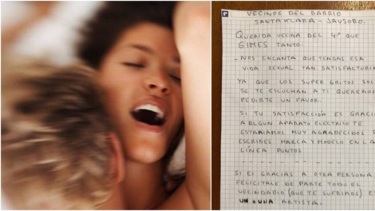 VECINOS DEL BARRIO
SANTA KLARA - JAUSORO.
QUERIDA VECINA DEL 4º QUE
GIMES TANTO:
- NOS ENCANTA QUE TENGAS ESA
VIDA SEXUAL TAN SATISFACTORIA
YA QUE LOS SUPER GRITOS SOLO
SE TE ESCUCHAN A TI QUEREMOS
PEDIRTE UN FAVOR.
SI TU SATISFACCIÓN ES GRACIAS
A ALGUN APARATO ELECTRICO TE
ESTARIAMOS MUY AGRADECIDOS
ESCRIBES MARCA Y MODELO EN LA
LÍNEA PUNTOS
SI ES GRACIAS A OTRA PERSONA
FELICITALE DE PARTE TODO EL
VECINDARIO (QUE TE SUFRIMOS) ES
UN O UNA ARTISTA.